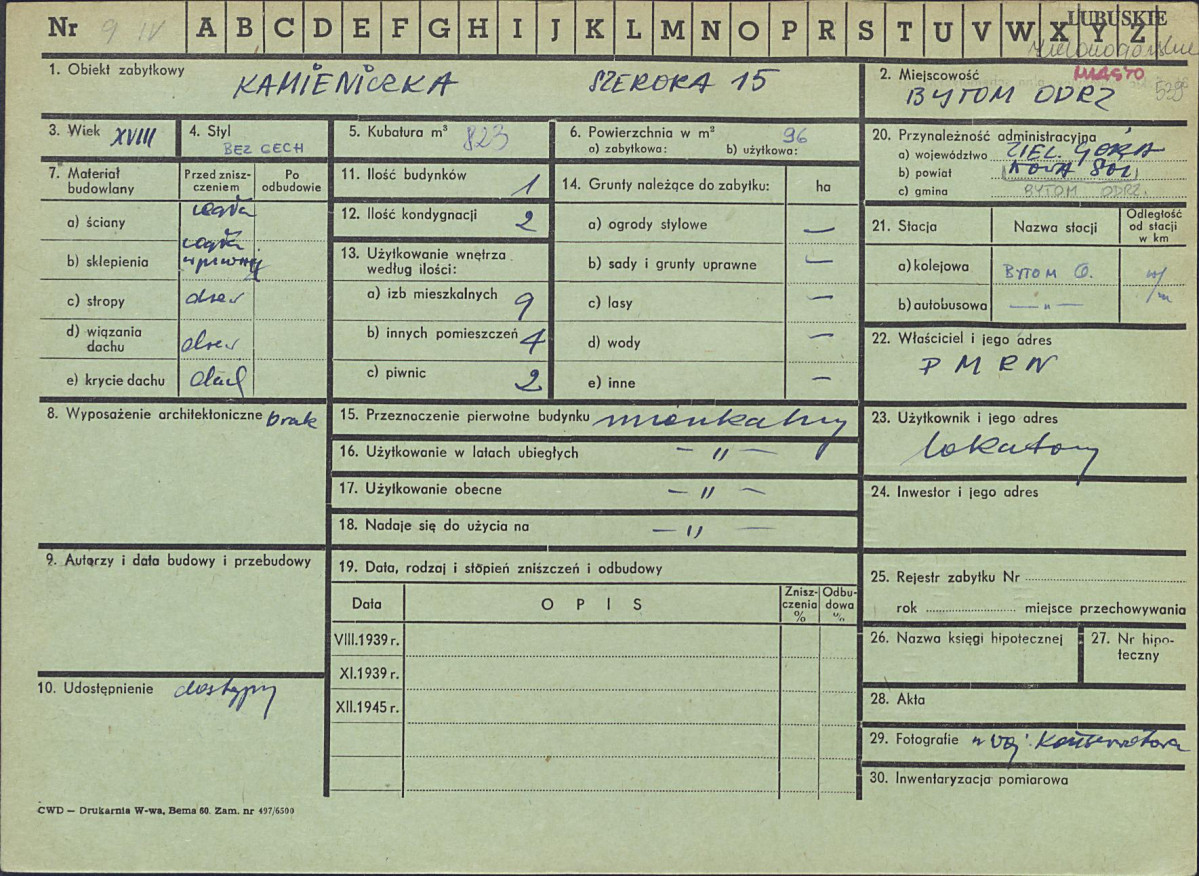 Nr 9 IV A B C D E F G H I J K L M N O P R S T U V W X Y Z
LUBUSKIE
1. Obiekt zabytkowy KAMIENICZKA SZEROKA 15
2. Miejscowość MIASTO
BYTOM ODRZ
3. Wiek XVIII
4. Styl
BEZ CECH
5. Kubatura m³ 823
6. Powierzchnia w m² 96
a) zabytkowa: b) użytkowa:
20. Przynależność administracyjna
a) województwo ZIEL. GÓRA
b) powiat NOWA SÓL
c) gmina BYTOM ODRZ.
7. Materiał
budowlany
Przed znisz-
czeniem
Po
odbudowie
a) ściany cegła
b) sklepienia cegła
c) stropy drew
d) wiązania
dachu drew
e) krycie dachu dach
11. Ilość budynków 1
12. Ilość kondygnacji 2
13. Użytkowanie wnętrza
według ilości:
a) izb mieszkalnych 9
b) innych pomieszczeń 4
c) piwnic 2
14. Grunty należące do zabytku: ha
a) ogrody stylowe —
b) sady i grunty uprawne —
c) lasy —
d) wody —
e) inne —
21. Stacja Nazwa stacji
Odległość
od stacji
w km
a) kolejowa BYTOM O. w/m
b) autobusowa — „ —
22. Właściciel i jego adres
P M R N
8. Wyposażenie architektoniczne brak
15. Przeznaczenie pierwotne budynku mieszkalny
16. Użytkowanie w latach ubiegłych — „ —
17. Użytkowanie obecne — „ —
18. Nadaje się do użycia na — „ —
23. Użytkownik i jego adres
lokatorzy
24. Inwestor i jego adres
9. Autorzy i data budowy i przebudowy
19. Data, rodzaj i stopień zniszczeń i odbudowy
Data O P I S
Znisz-
czenia
%
Odbu-
dowa
%
VIII.1939 r.
XI.1939 r.
XII.1945 r.
25. Rejestr zabytku Nr
rok miejsce przechowywania
26. Nazwa księgi hipotecznej
27. Nr hipo-
teczny
10. Udostępnienie dostępny
28. Akta
29. Fotografie u Woj. Konserwatora
30. Inwentaryzacja pomiarowa
CWD — Drukarnia W-wa, Bema 60. Zam. nr 497/6500